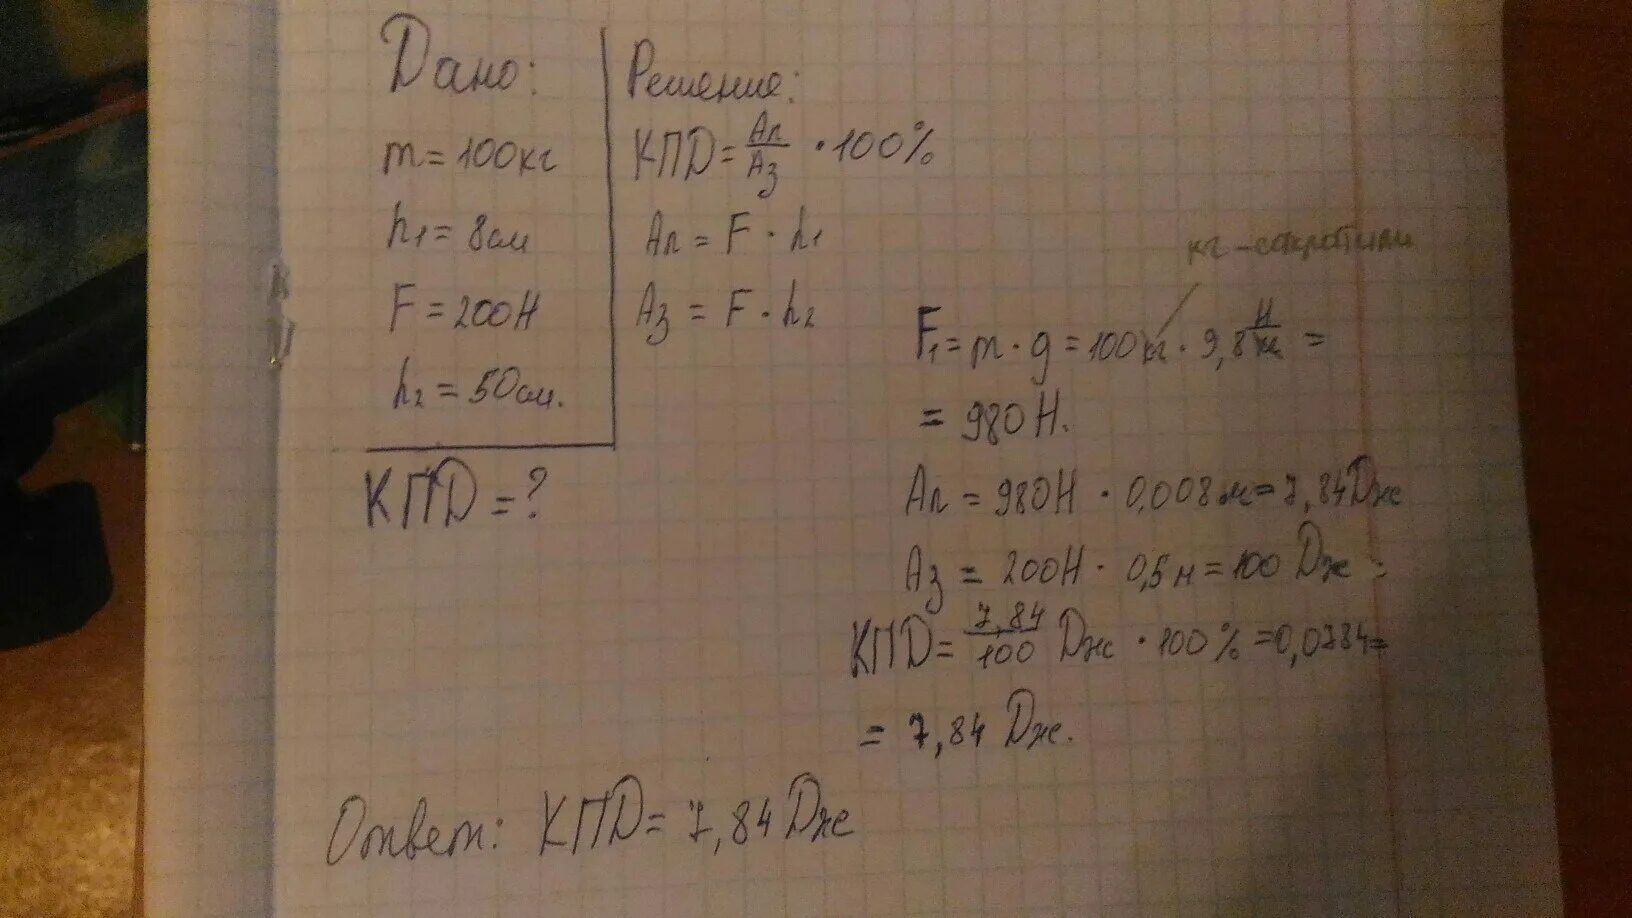 Дано:
m = 100кг
h1 = 8см
F = 200Н
h2 = 50см.
КПД = ?
Решение:
КПД = Ап/Аз · 100%
Ап = F · h1
Аз = F · h2
кг - сократили
F1 = m · g = 100кг · 9,8 Н/кг =
= 980Н.
Ап = 980Н · 0,008м = 7,84Дж
Аз = 200Н · 0,5м = 100 Дж =
КПД = 7,84/100 Дж · 100% = 0,0784 =
= 7,84 Дж.
Ответ: КПД = 7,84 Дж